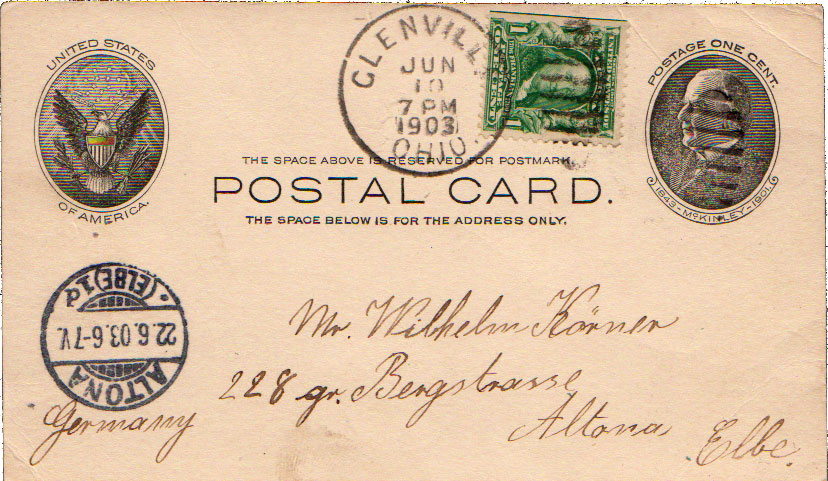 UNITED STATES
OF AMERICA.
GLENVILL
JUN
10
7 PM
1903
OHIO.
POSTAGE ONE CENT.
1843 - McKINLEY - 1901.
THE SPACE ABOVE IS RESERVED FOR POSTMARK.
POSTAL CARD.
THE SPACE BELOW IS FOR THE ADDRESS ONLY.
ALTONA
22.6.03.6-7V.
(ELBE)1d
Mr. Wilhelm Körner
228 gr. Bergstrasse
Altona Elbe.
Germany